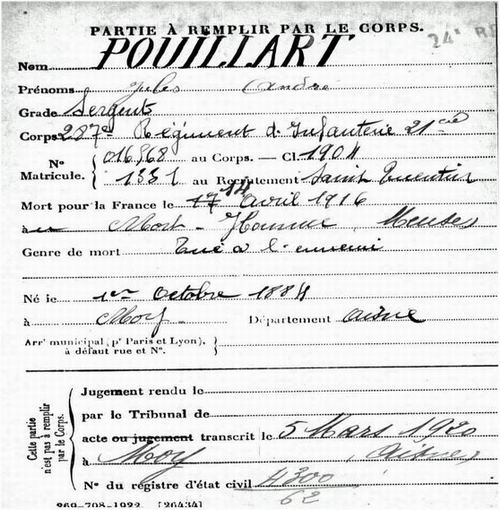 PARTIE À REMPLIR PAR LE CORPS.
24e
Nom POUILLART
Prénoms Jules André
Grade Sergent
Corps 287e Régiment d'Infanterie 21e Cie
N° Matricule. { 016868 au Corps. — Cl 1904
1331 au Recrutement Saint Quentin
Mort pour la France le 17 14 Avril 1916
à au Mort-Homme, (Meuse)
Genre de mort Tué à l'ennemi
Né le 1er Octobre 1884
à Moy Département Aisne
Arrt municipal (pr Paris et Lyon), à défaut rue et N°. }
Cette partie n'est pas à remplir par le Corps. {
Jugement rendu le
par le Tribunal de
acte ou jugement transcrit le 5 Mars 1920
à Moy (Aisne)
N° du registre d'état civil 4300
62
269-708-1922. [26434]